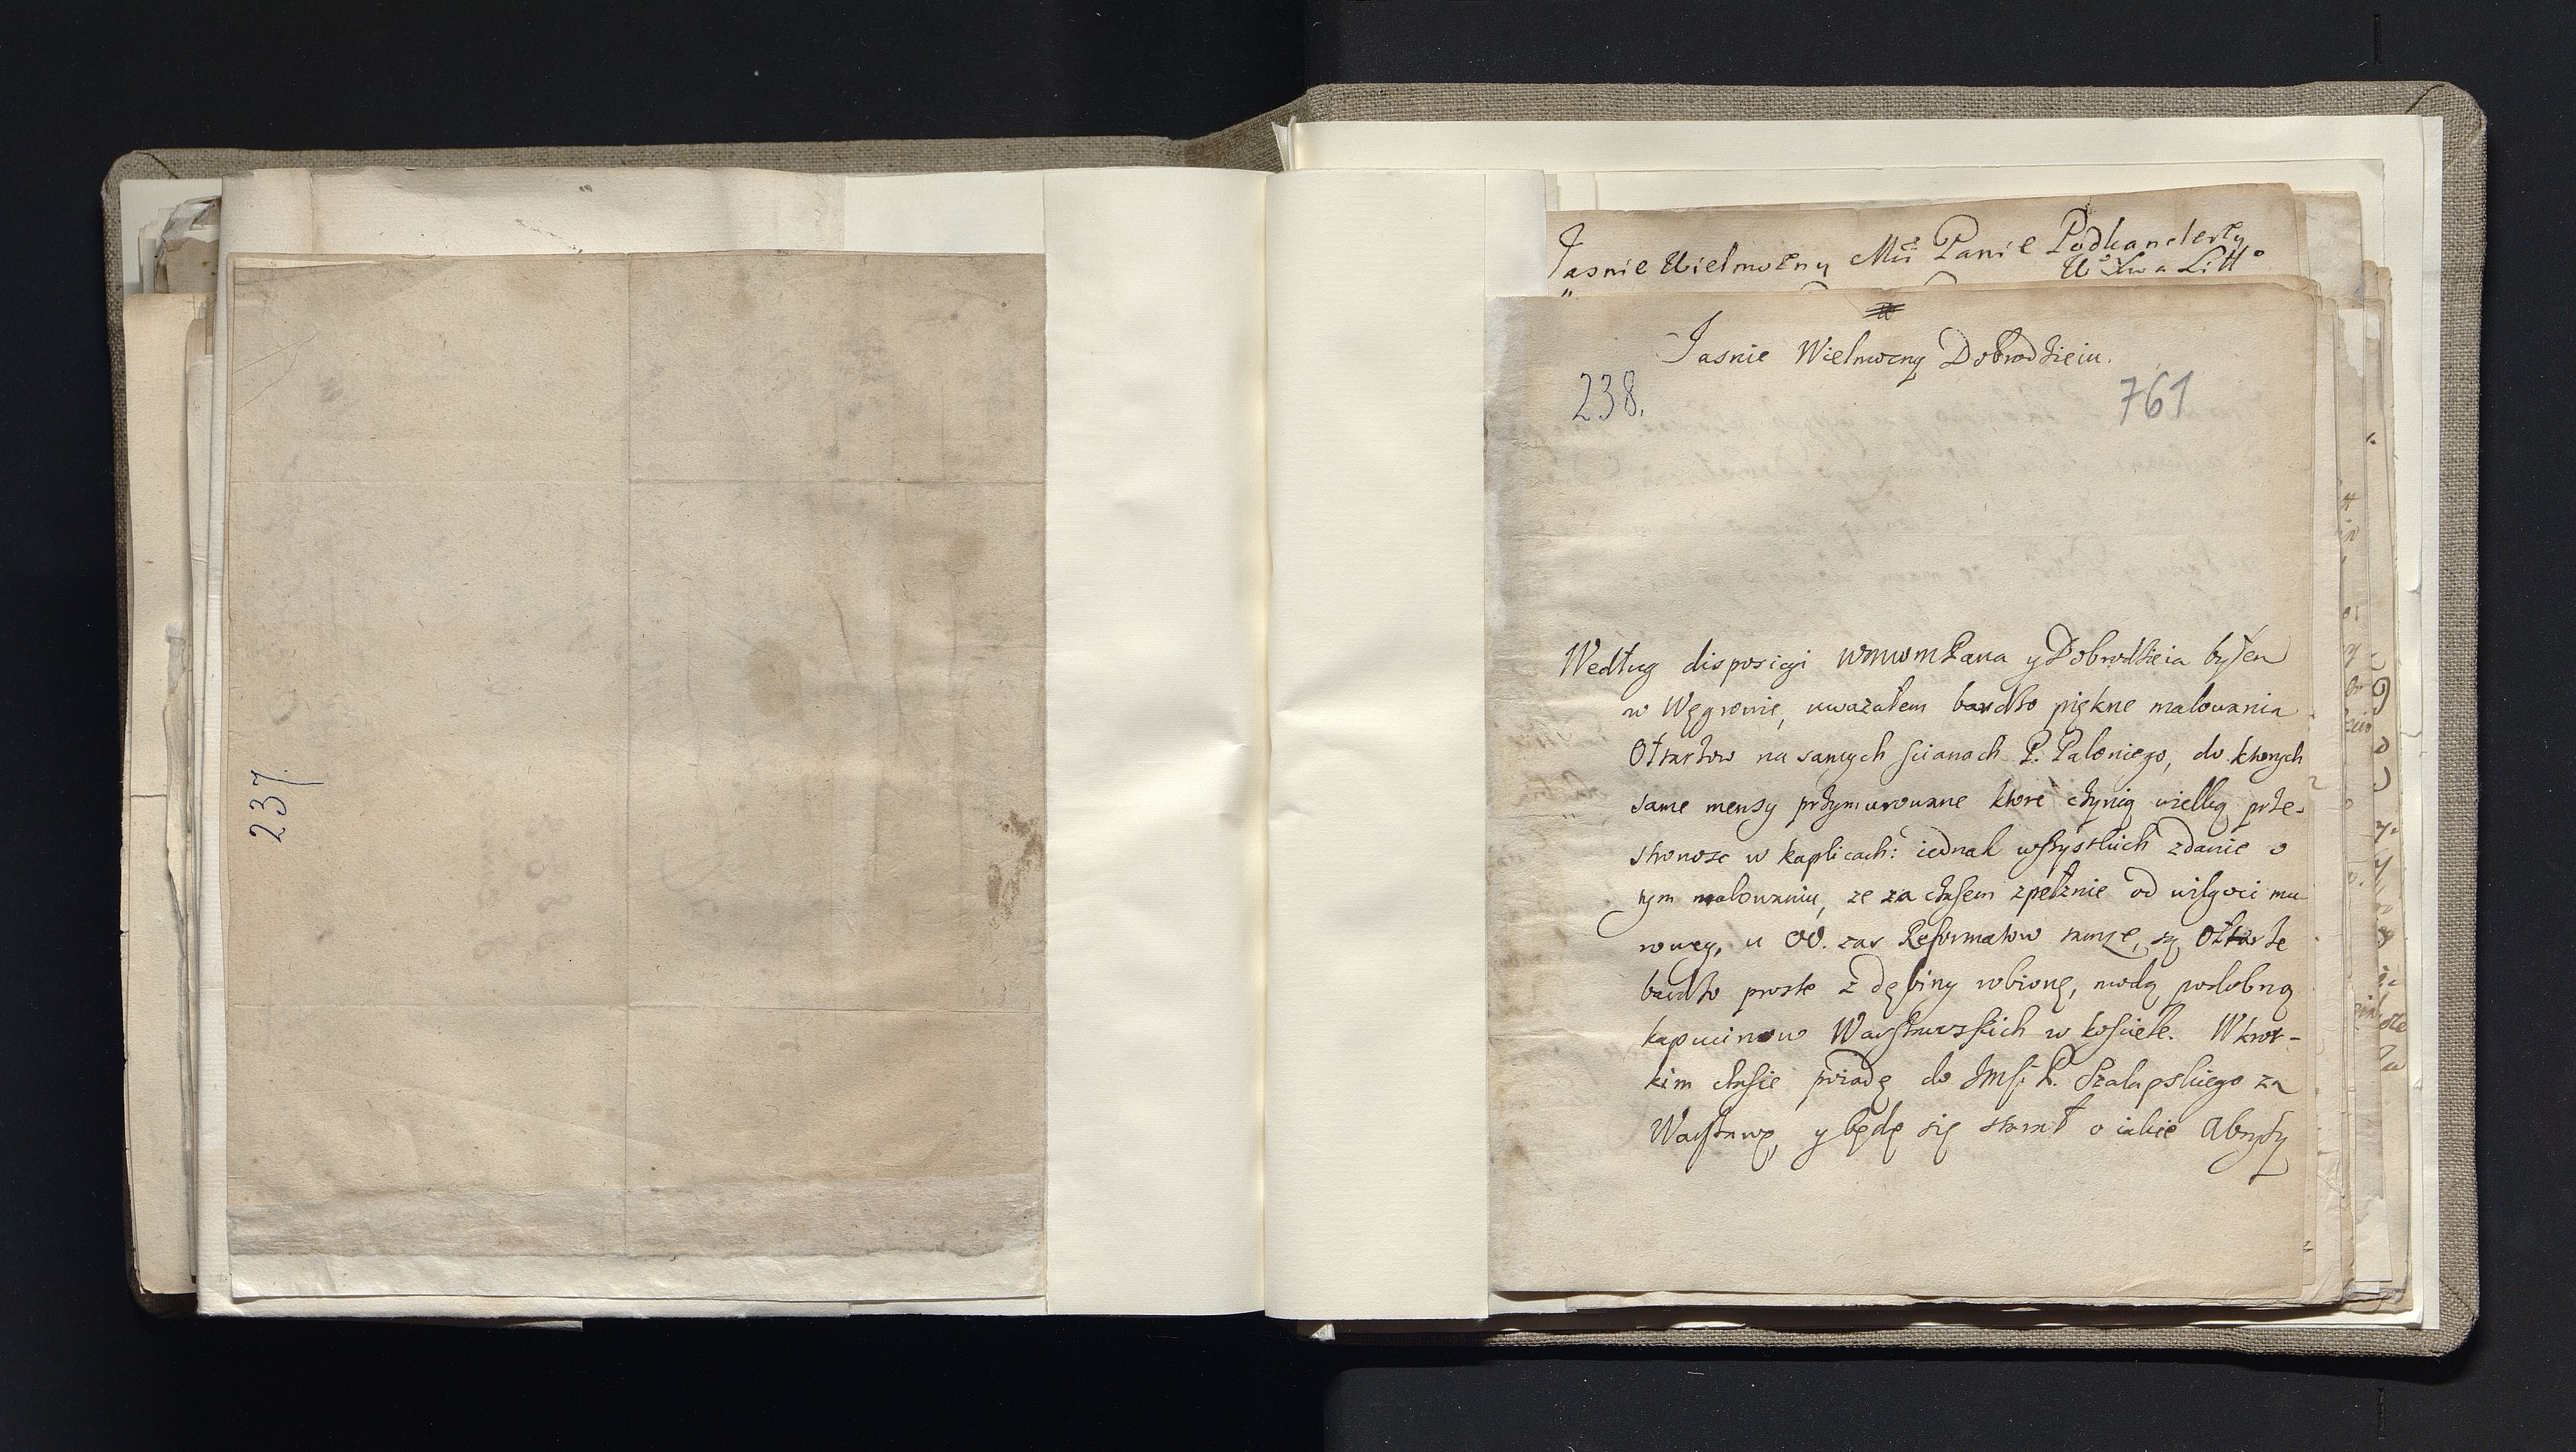 237.
Jasnie Wielmożny Mći Panie Podkanclerzy
Jasnie Wielmozny Dobrodzieiu.
238.
761
Według disposicyi WMWMPana y Dobrodzieia byłem
w Węgrowie, uwazałem bardzo piękne malowania
Ołtarzow na samych scianach P. Paloniego, do ktorych
same mensy przymurowane ktore czynią wielką prze-
stronosc w kaplicach: iednak wszystkich zdanie o
tym malowaniu, ze za czasem zpełznie od wilgoci mu
rowey, u OO. zas Reformatow tamze, są Ołtarze
bardzo proste z dębiny robione, modą podobną
kapucinow Warszawskich w kosciele. W krot-
kim czasie poiadę do Jmsi P. Szalapskiego za
Warszawę, y będę się starał o iakie abryzy